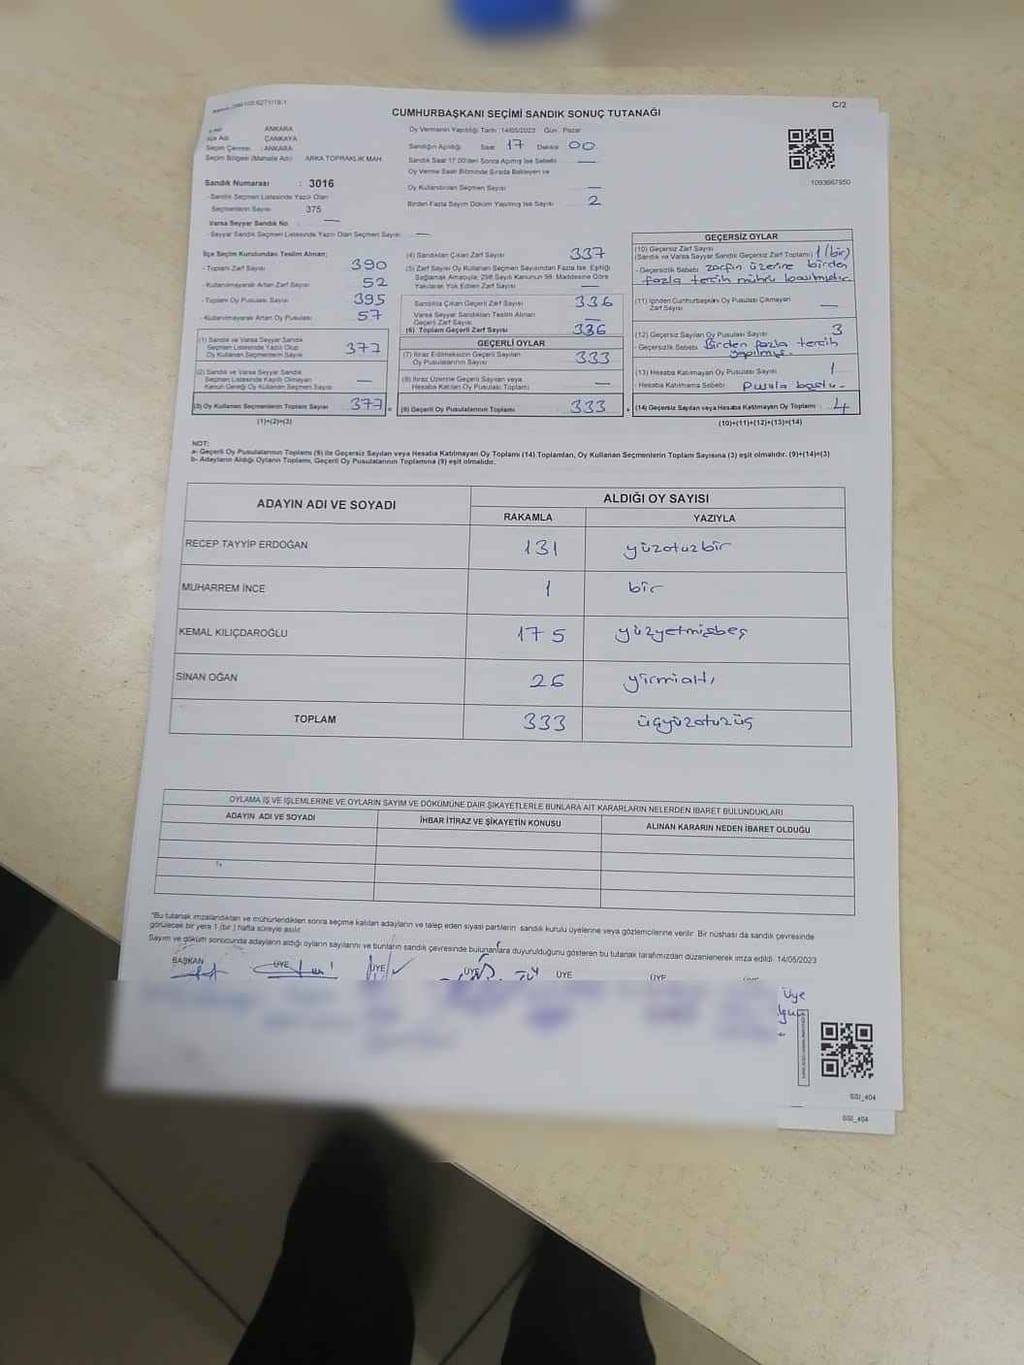 C/2
CUMHURBAŞKANI SEÇİMİ SANDIK SONUÇ TUTANAĞI
ANKARA
İlçe Adı ÇANKAYA
Seçim Çevresi : ANKARA
Seçim Bölgesi (Mahalle Adı) : ARKA TOPRAKLIK MAH
Sandık Numarası : 3016
- Sandık Seçmen Listesinde Yazılı Olan
Seçmenlerin Sayısı 375
Varsa Seyyar Sandık No —
- Seyyar Sandık Seçmen Listesinde Yazılı Olan Seçmen Sayısı —
Oy Vermenin Yapıldığı Tarih :14/05/2023 Gün : Pazar
Sandığın Açıldığı Saat 17 Dakika 00
Sandık Saat 17:00'den Sonra Açılmış İse Sebebi —
Oy Verme Saati Bitiminde Sırada Bekleyen ve
Oy Kullandırılan Seçmen Sayısı —
Birden Fazla Sayım Döküm Yapılmış İse Sayısı 2
1093667950
İlçe Seçim Kurulundan Teslim Alınan;
- Toplam Zarf Sayısı 390
- Kullanılmayarak Artan Zarf Sayısı 52
- Toplam Oy Pusulası Sayısı 395
- Kullanılmayarak Artan Oy Pusulası 57
(1) Sandık ve Varsa Seyyar Sandık
Seçmen Listesinde Yazılı Olup
Oy Kullanan Seçmenlerin Sayısı 377
(2) Sandık ve Varsa Seyyar Sandık
Seçmen Listesinde Kayıtlı Olmayan
Kanun Gereği Oy Kullanan Seçmen Sayısı —
(3) Oy Kullanan Seçmenlerin Toplam Sayısı 377
(1)+(2)=(3)
(4) Sandıktan Çıkan Zarf Sayısı 337
(5) Zarf Sayısı Oy Kullanan Seçmen Sayısından Fazla İse, Eşitliği
Sağlamak Amacıyla, 298 Sayılı Kanunun 98. Maddesine Göre
Yakılarak Yok Edilen Zarf Sayısı —
Sandıkta Çıkan Geçerli Zarf Sayısı 336
Varsa Seyyar Sandıktan Teslim Alınan
Geçerli Zarf Sayısı —
(6) Toplam Geçerli Zarf Sayısı 336
GEÇERLİ OYLAR
(7) İtiraz Edilmeksizin Geçerli Sayılan
Oy Pusulalarının Sayısı 333
(8) İtiraz Üzerine Geçerli Sayılan veya
Hesaba Katılan Oy Pusulası Toplamı —
(9) Geçerli Oy Pusulalarının Toplamı 333
GEÇERSİZ OYLAR
(10) Geçersiz Zarf Sayısı
(Sandık ve Varsa Seyyar Sandık Geçersiz Zarf Toplamı) 1 (bir)
- Geçersizlik Sebebi zarfın üzerine birden
fazla tercih mührü basılmıştır
(11) İçinden Cumhurbaşkanı Oy Pusulası Çıkmayan
Zarf Sayısı —
(12) Geçersiz Sayılan Oy Pusulası Sayısı 3
- Geçersizlik Sebebi Birden fazla tercih
yapılmış.
(13) Hesaba Katılmayan Oy Pusulası Sayısı 1
- Hesaba Katılmama Sebebi Pusula boştu -
(14) Geçersiz Sayılan veya Hesaba Katılmayan Oy Toplamı 4
(10)+(11)+(12)+(13)=(14)
NOT:
a- Geçerli Oy Pusulalarının Toplamı (9) ile Geçersiz Sayılan veya Hesaba Katılmayan Oy Toplamı (14) Toplamları, Oy Kullanan Seçmenlerin Toplam Sayısına (3) eşit olmalıdır. (9)+(14)=(3)
b- Adayların Aldığı Oyların Toplamı, Geçerli Oy Pusulalarının Toplamına (9) eşit olmalıdır.
ADAYIN ADI VE SOYADI ALDIĞI OY SAYISI
RAKAMLA YAZIYLA
RECEP TAYYİP ERDOĞAN 131 yüzotuzbir
MUHARREM İNCE 1 bir
KEMAL KILIÇDAROĞLU 175 yüzyetmişbeş
SİNAN OĞAN 26 yirmialtı
TOPLAM 333 üçyüzotuzüç
OYLAMA İŞ VE İŞLEMLERİNE VE OYLARIN SAYIM VE DÖKÜMÜNE DAİR ŞİKAYETLERLE BUNLARA AİT KARARLARIN NELERDEN İBARET BULUNDUKLARI
ADAYIN ADI VE SOYADI İHBAR İTİRAZ VE ŞİKAYETİN KONUSU ALINAN KARARIN NEDEN İBARET OLDUĞU
"Bu tutanak imzalandıktan ve mühürlendikten sonra seçime katılan adayların ve talep eden siyasi partilerin sandık kurulu üyelerine veya gözlemcilerine verilir. Bir nüshası da sandık çevresinde
görülecek bir yere 1 (bir ) hafta süreyle asılır.
Sayım ve döküm sonucunda adayların aldığı oyların sayılarını ve bunların sandık çevresinde bulunanlara duyurulduğunu gösteren bu tutanak tarafımızdan düzenlenerek imza edildi. 14/05/2023
BAŞKAN ÜYE ÜYE ÜYE ÜYE ÜYE
Üye
SSI_404
SSI_404